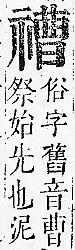 䄚
俗字舊音曹
祭始先也泥